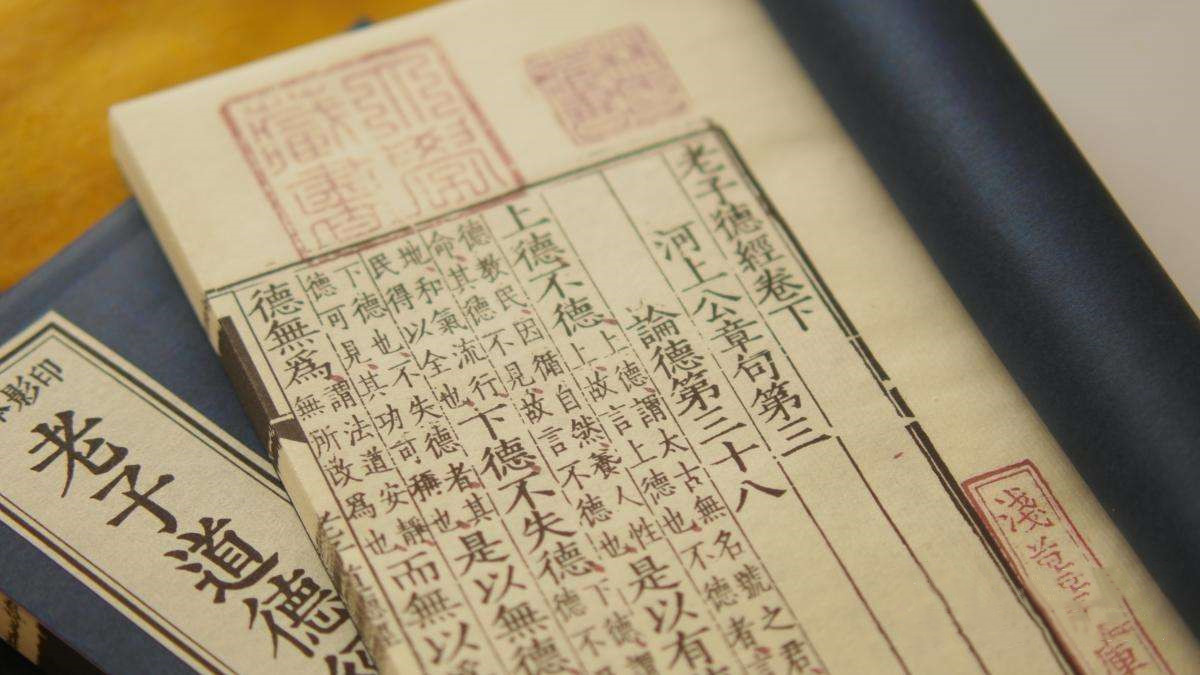 老子德經卷下
河上公章句第三
論德第三十八
上德不德
上德謂太古無名號之君
上故言上德也不德者言
德教民因循自然養人性
命其德不見故言不德也
是以有
地和氣流行
民得以全也
下德不失德
下德謂
德不
不失德者其
德可見其功可稱也
是以無德
德無爲
謂法道安靜
無所改爲也
而無以
影印
老子道德
淺草
庫